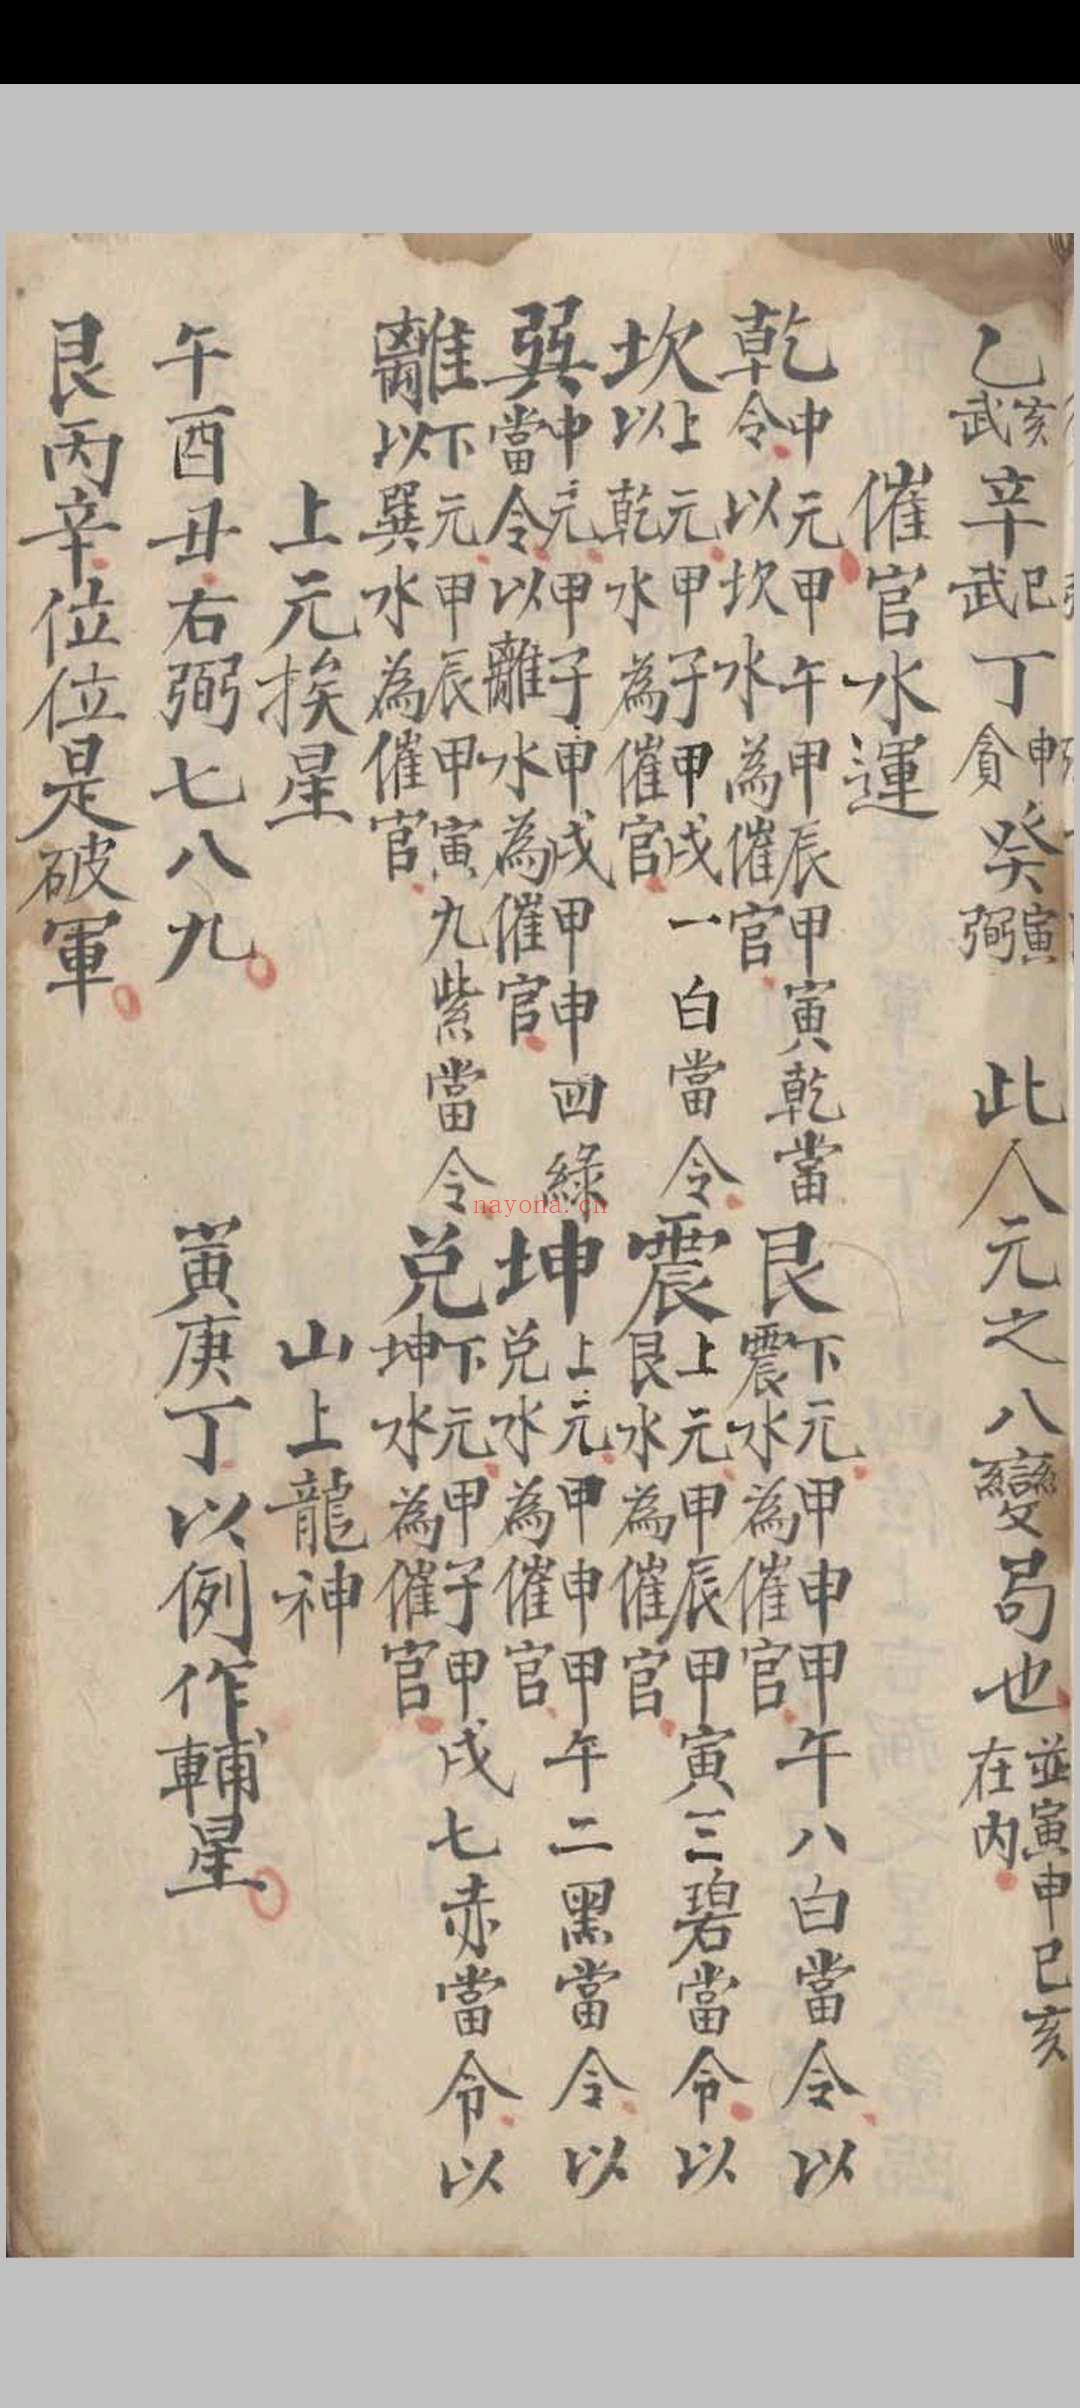 乙亥武辛巳武丁申貪癸寅弼 此人元之八變局也並寅申巳亥在內
催官水運
乾中元甲午甲辰甲寅乾當令以坎水為催官 艮下元甲申甲午八白當令以震水為催官
坎上元甲子甲戌一白當令以乾水為催官 震上元甲辰甲寅三碧當令以艮水為催官
巽中元甲子甲戌甲申四綠當令以離水為催官 坤上元甲申甲午二黑當令以兌水為催官
離下元甲辰甲寅九紫當令以巽水為催官 兌下元甲子甲戌七赤當令以坤水為催官
上元挨星 山上龍神
午酉丑右弼七八九 寅庚丁以例作輔星
艮丙辛位位是破軍
nayona.cn